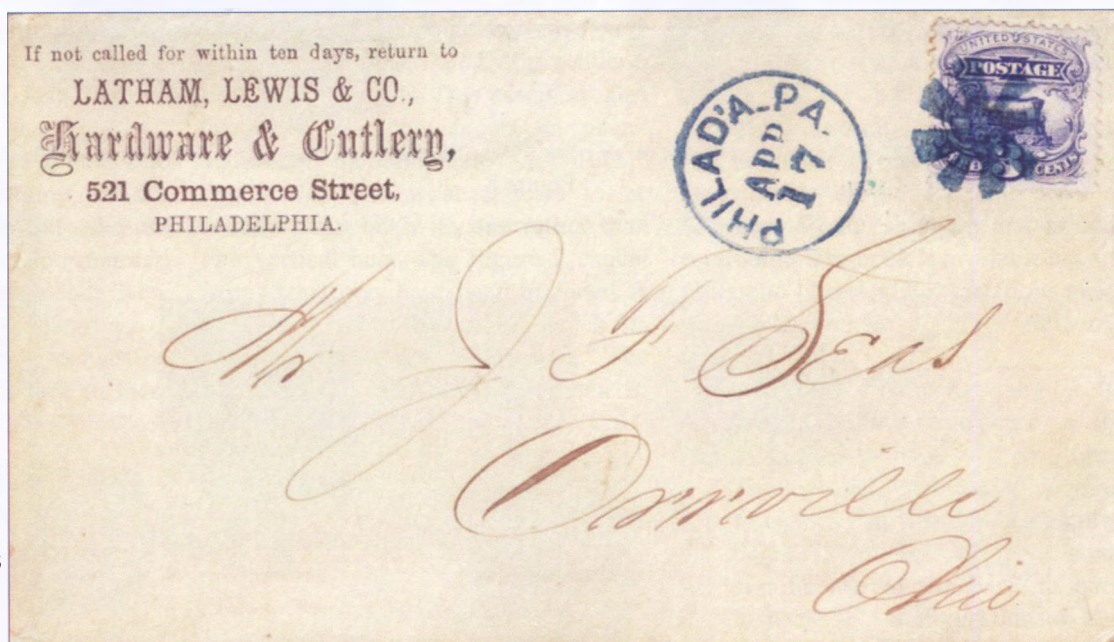 If not called for within ten days, return to
LATHAM, LEWIS & CO.,
Hardware & Cutlery,
521 Commerce Street,
PHILADELPHIA.
PHILAD'A. PA.
APR
17
UNITED STATES
POSTAGE
3
CENTS
Mr J F Seas
Orrville
Ohio